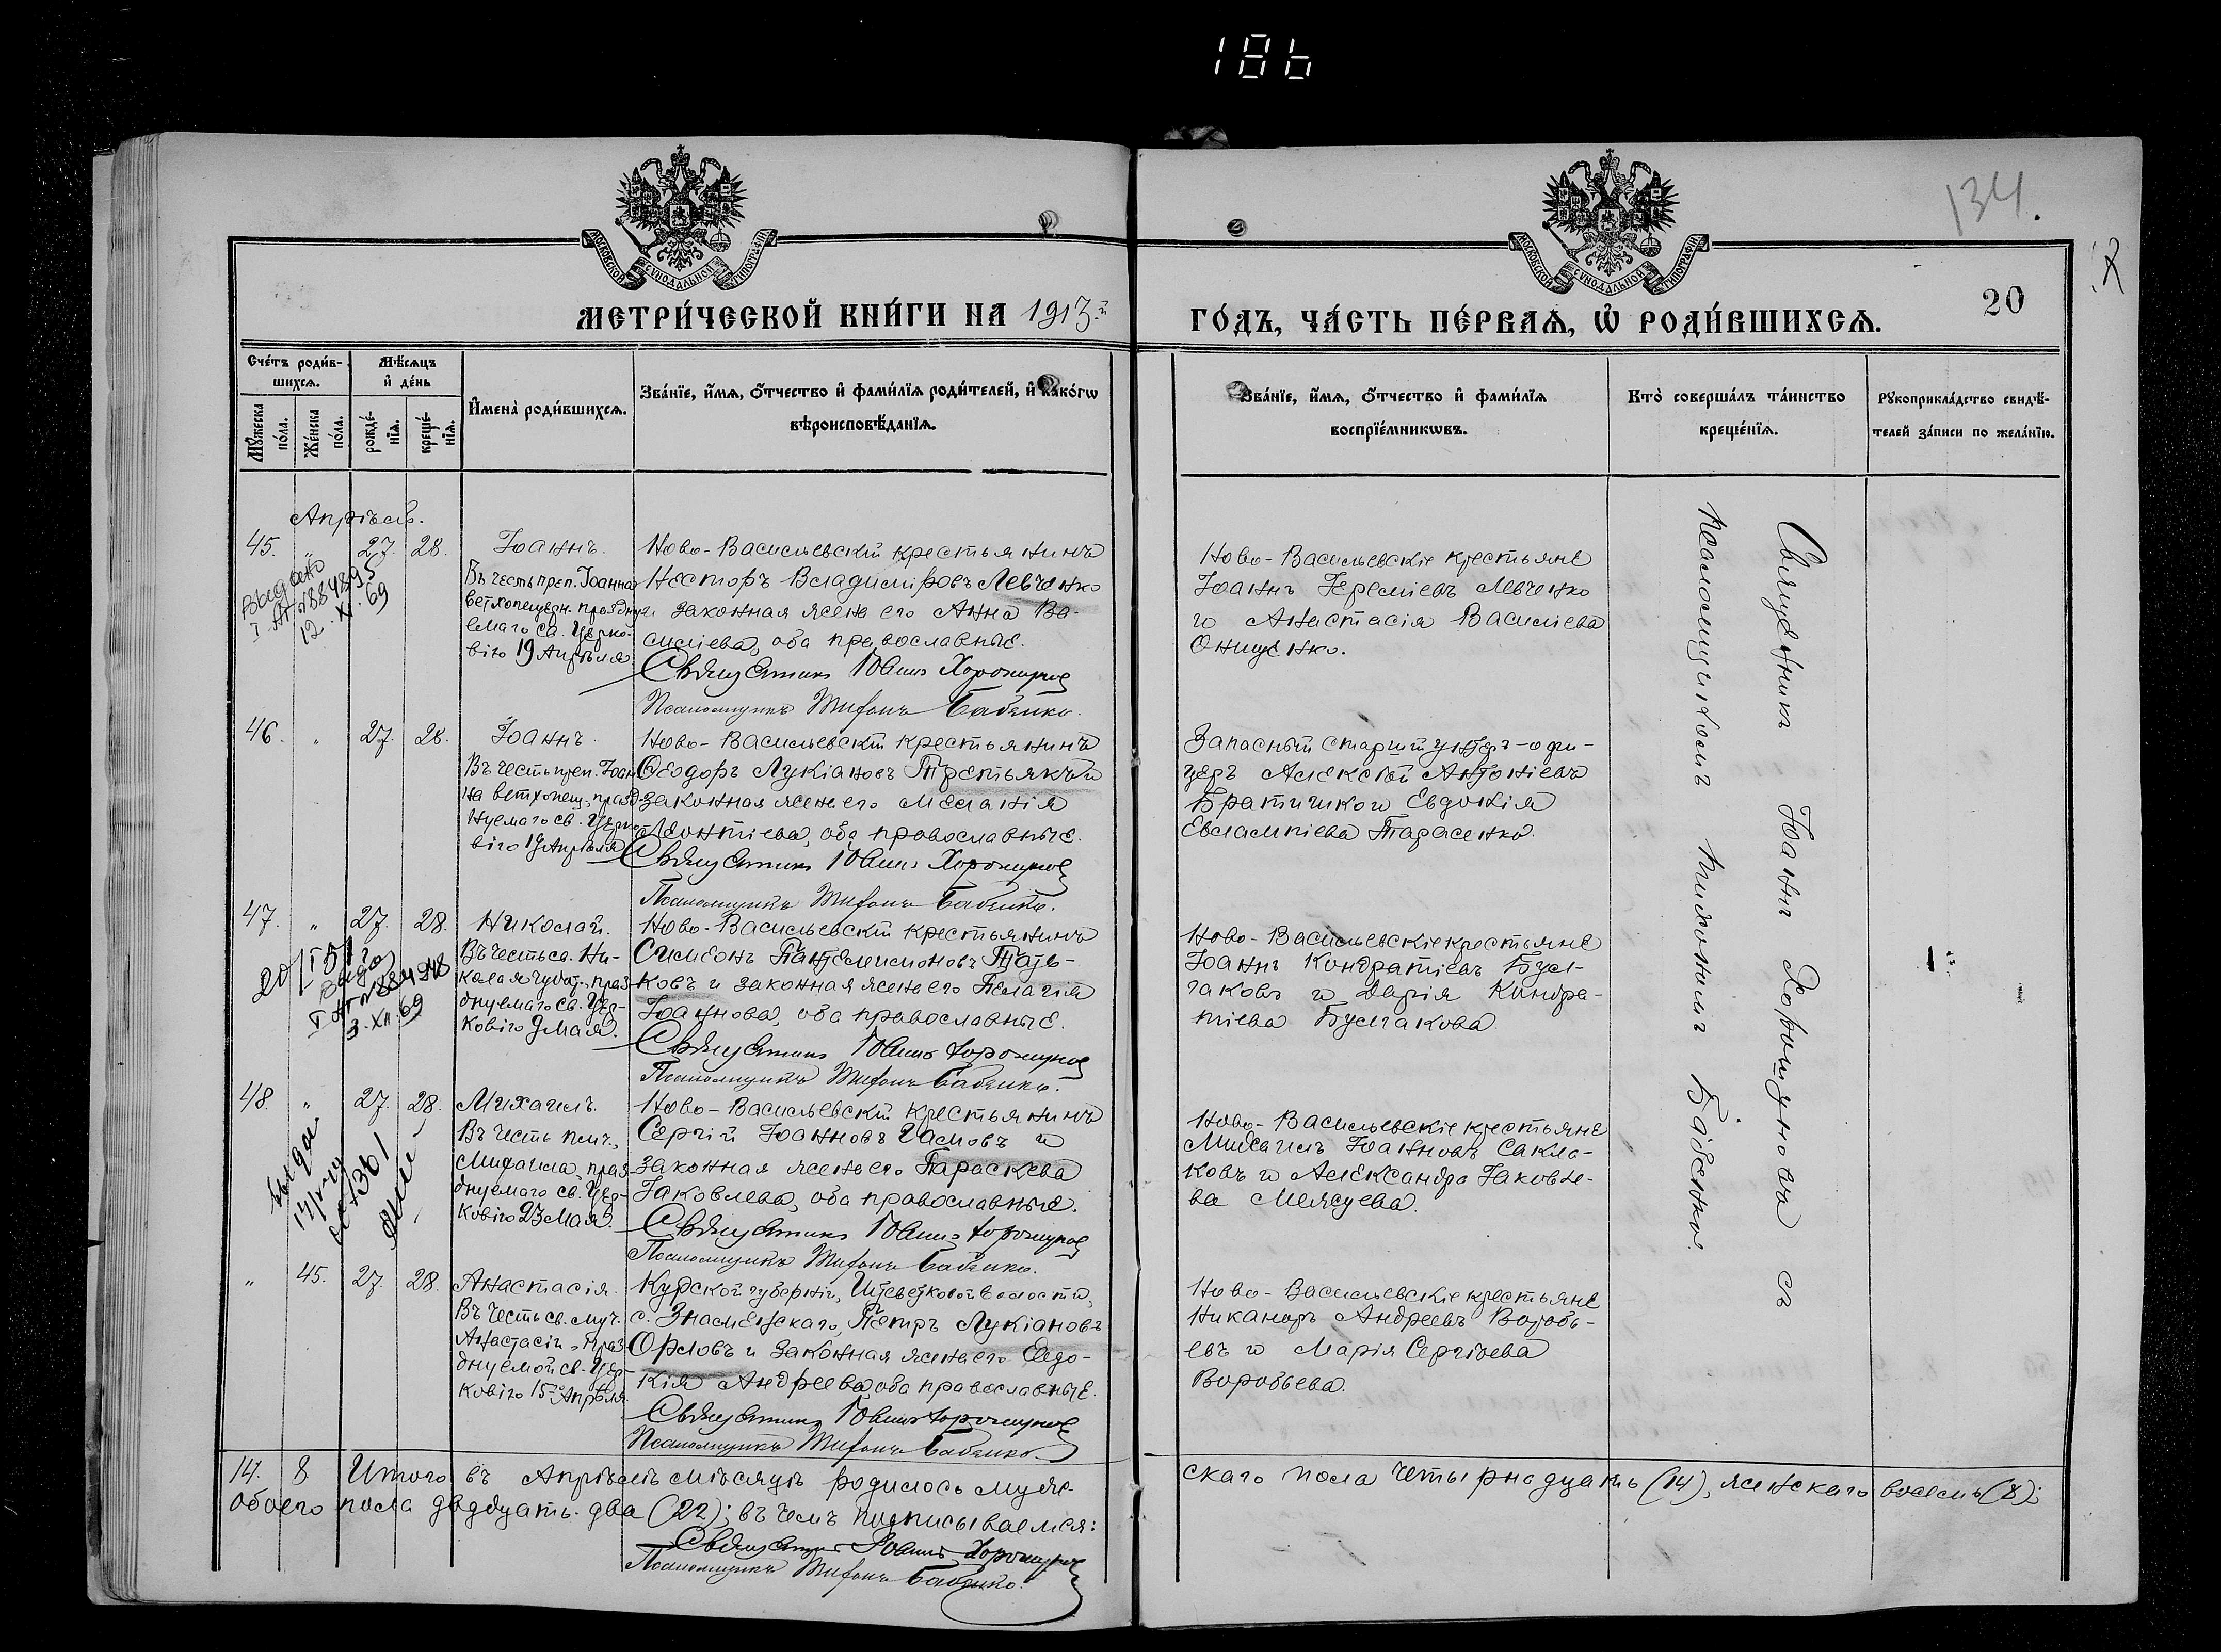 186
134.
МОСКОВСКОЙ СУНОДАЛЬНОЙ ТИПОГРАФІИ
МОСКОВСКОЙ СУНОДАЛЬНОЙ ТИПОГРАФІИ
МЕТРИ́ЧЕСКОЙ КНИ́ГИ НА 1913-й
ГО́ДЪ, ЧА́СТЬ ПЕ́РВАѦ, Ѡ҆ РОДИ́ВШИХСѦ.
20
Сче́тъ роди́в-
шихсѧ.
Мѣ́сѧцъ
и҆ де́нь
Мꙋ́жеска
по́ла.
Же́нска
по́ла.
рожде́-
нїѧ.
креще́-
нїѧ.
И҆мена̀ роди́вшихсѧ.
Зва́нїе, и҆́мѧ, ѻ҆́тчество и҆ фами́лїѧ роди́телей, и҆ како́гѡ
вѣроисповѣ́данїѧ.
Зва́нїе, и҆́мѧ, ѻ҆́тчество и҆ фами́лїѧ
воспрїе́мникѡвъ.
Кто̀ соверша́лъ та́инство
креще́нїѧ.
Рꙋкоприкла́дство свидѣ́-
телей за́писи по жела́нїю.
Апрѣль.
45. " 27. 28. Іоаннъ.
Въ честь преп. Іоанна
ветхопещерн. праздну-
емаго св. Церко-
вію 19 Апрѣля.
Выдано
I АП № 884895
12. XI. 69
Ново-Васильевскій крестьянинъ
Несторъ Владиміровъ Левченко
и законная жена его Анна Ва-
силіева, оба православные.
Священникъ Іоаннъ Хорошуновъ
Псаломщикъ Тихонъ Бабенко.
Ново-Васильевскіе крестьяне
Іоаннъ Іереміевъ Левченко
и Анастасія Василіева
Онищенко.
46. " 27. 28. Іоаннъ.
Въ честь преп. Іоан-
на ветхопещ., празд-
нуемаго св. Церко-
вію 19 Апрѣля
Ново-Васильевскій крестьянинъ
Ѳеодоръ Лукіановъ Третьякъ и
законная жена его Меланія
Леонтіева, оба православные.
Священникъ Іоаннъ Хорошуновъ
Псаломщикъ Тихонъ Бабенко.
Запасный старшій унтеръ-офи-
церъ Алексѣй Антоніевъ
Братишко и Евдокія
Евлампіева Тарасенко.
47. " 27. 28. Николай.
Въ честь св. Ни-
колая чудот., праз-
днуемаго св. Цер-
ковію 9 Мая.
3. XII. 69
Ново-Васильевскій крестьянинъ
Симеонъ Пантелеимоновъ
ковъ и законная жена его Пелагія
Іоаннова, оба православные.
Священникъ Іоаннъ Хорошуновъ
Псаломщикъ Тихонъ Бабенко.
Ново-Васильевскіе крестьяне
Іоаннъ Кондратіевъ Бул-
гаковъ и Дарія Кондра-
тіева Булгакова.
48. " 27. 28. Михаилъ.
Въ честь муч.
Михаила, праз-
днуемаго св. Цер-
ковію 23 Мая.
Ново-Васильевскій крестьянинъ
Сергій Іоанновъ и
законная жена его Параскева
Іаковлева, оба православные.
Священникъ Іоаннъ Хорошуновъ
Псаломщикъ Тихонъ Бабенко.
Ново-Васильевскіе крестьяне
Михаилъ Іоанновъ Сакла-
ковъ и Александра Іаковле-
ва
" 45. 27. 28. Анастасія.
Въ честь св. муч.
Анастасіи, праз-
днуемой св. Цер-
ковію 15-го Апрѣля.
Курской губерніи, волости,
с. Знаменскаго, Петръ Лукіановъ
Орловъ и законная жена его Евдо-
кія Андреева, оба православные.
Священникъ Іоаннъ Хорошуновъ
Псаломщикъ Тихонъ Бабенко.
Ново-Васильевскіе крестьяне
Никаноръ Андреевъ Воробь-
евъ и Марія Сергіева
Воробьева.
Священникъ Іоаннъ Хорошуновъ съ
псаломщикомъ Тихономъ Бабенко.
14. 8 Итого въ Апрѣлѣ мѣсяцѣ родилось муже-
скаго пола четырнадцать (14), женскаго восемь (8);
обоего пола двадцать два (22); въ чемъ подписываемся:
Священникъ Іоаннъ Хорошуновъ
Псаломщикъ Тихонъ Бабенко.